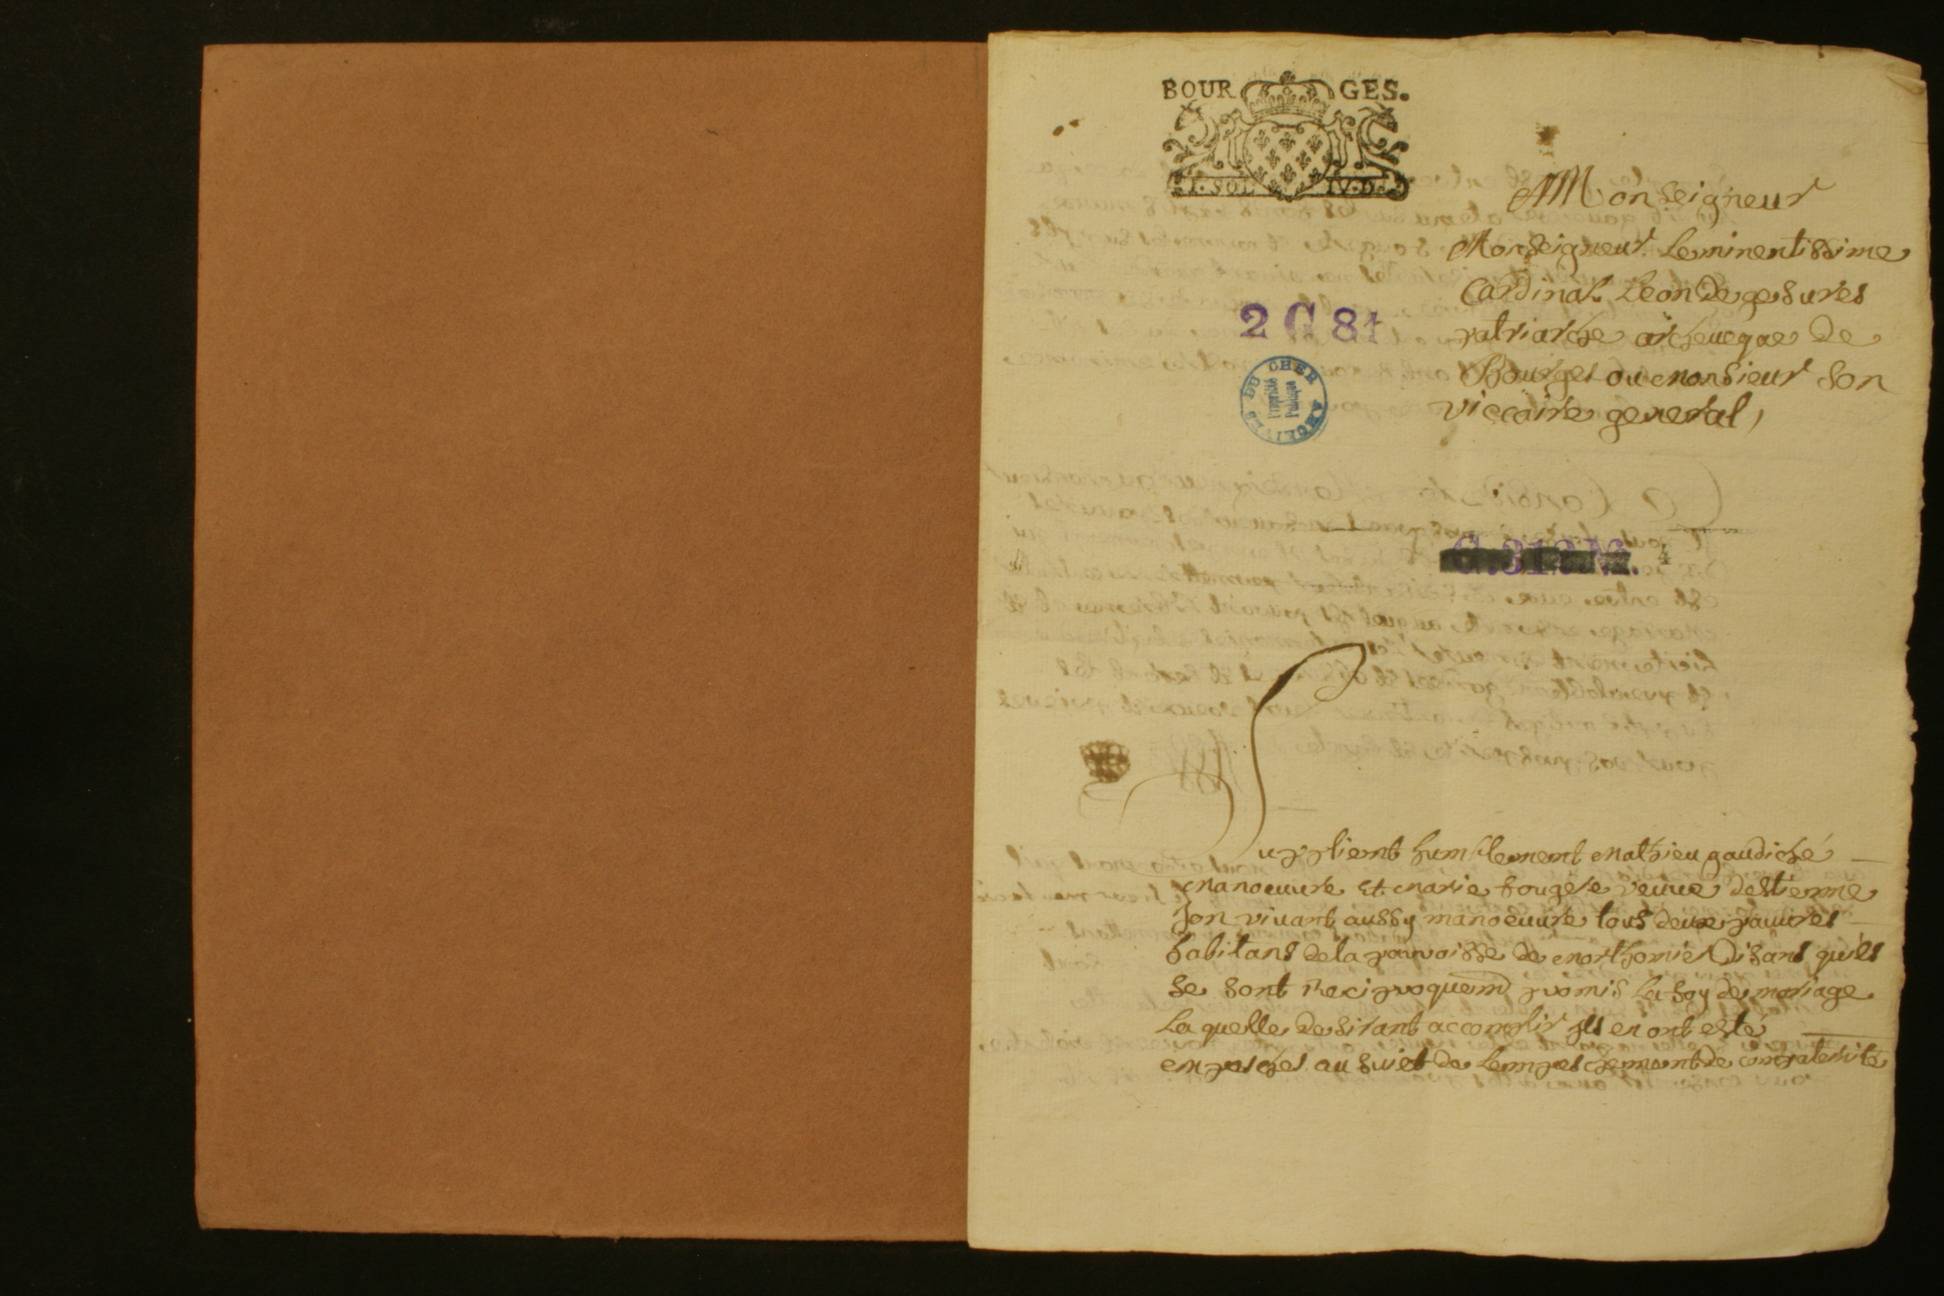 BOUR GES.
I·SOL IV·D
A Monseigneur
Monseigneur Leminentissime
Cardinal Leon de gesures
patriarche archeueque de
Bourges ou monsieur son
viccaire general,
2 G 81
ARCHIVES DU CHER
Propriété
Publique
Supplient humblement mathieu gaudiché
manoeuure et marie fougere veuue destienne
son viuant aussy manoeuure tous deux pauures
habitans de la parroisse de morthomié Disant quils
se sont Reciproquemt promis la foy de mariage
Laquelle desirant accomplir ils en ont esté
empeschés au suiet de lempeschement de compaternité